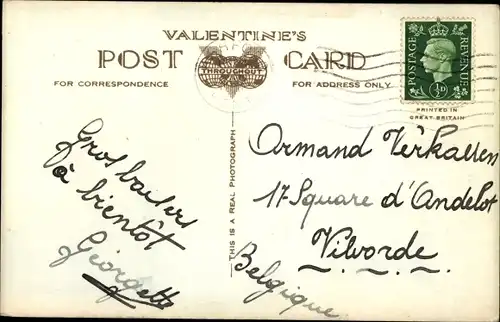 VALENTINE'S
POST CARD
THROUGHOUT
FOR CORRESPONDENCE
FOR ADDRESS ONLY
POSTAGE
REVENUE
½D
PRINTED IN
GREAT BRITAIN
THIS IS A REAL PHOTOGRAPH
Gros baisers
à bientôt
Georgette
Armand Verkassen
17 Square d'Andelot
Vilvorde.
Belgique.